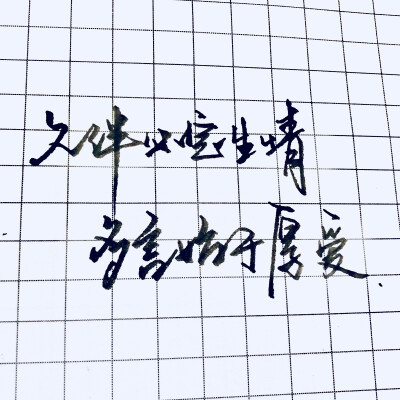 久伴必定生情
多言始于厚爱.